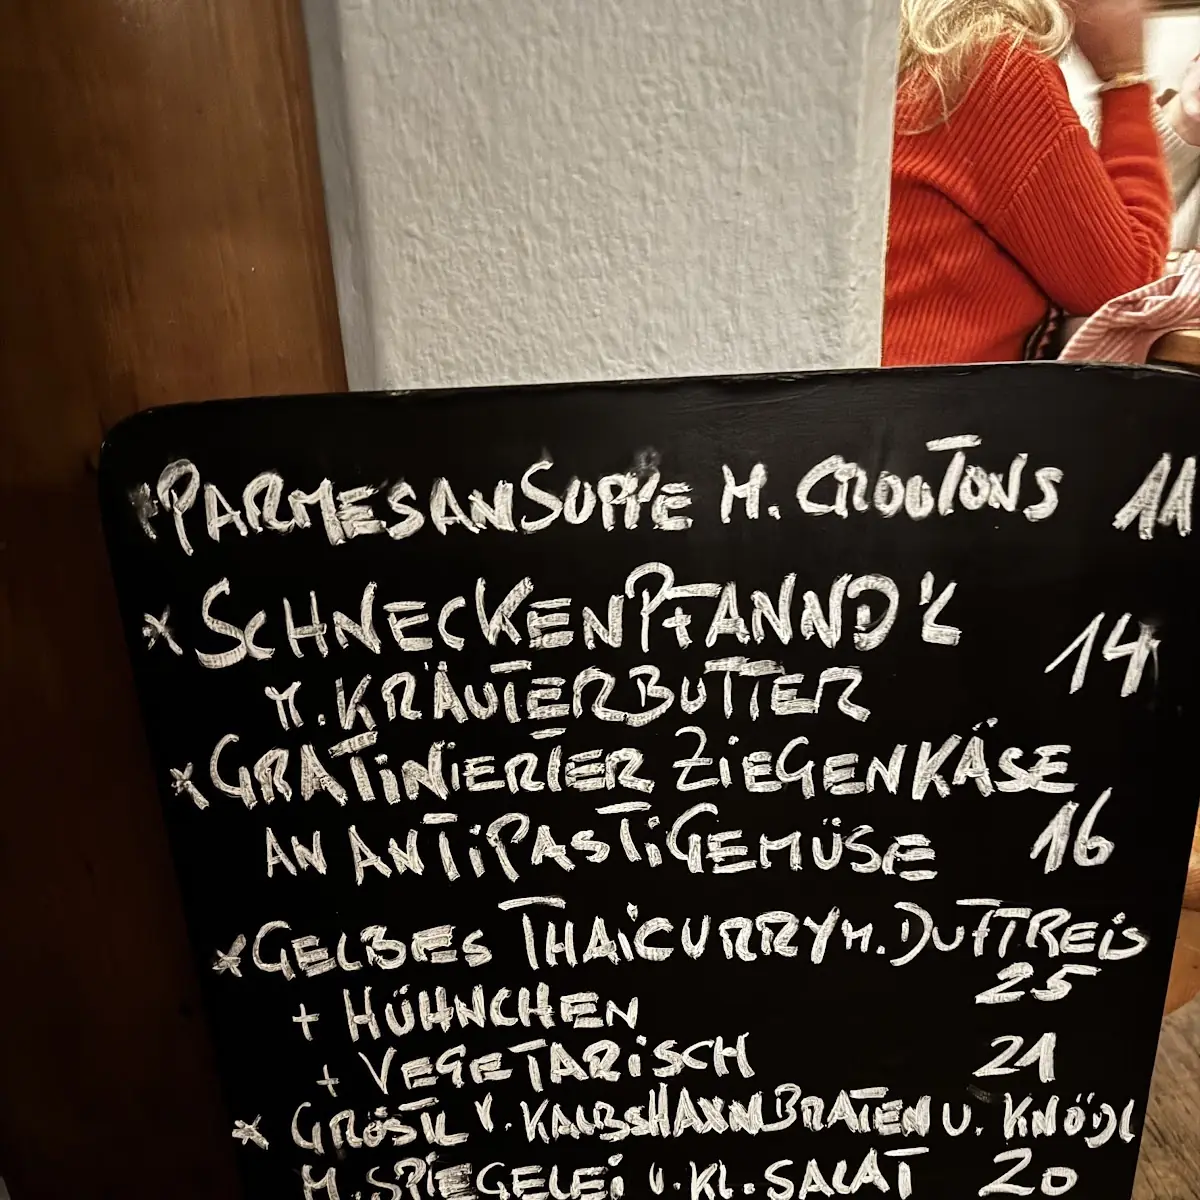 * PARMESANSUPPE M. CROUTONS 11
* SCHNECKENPFANND'L
M. KRÄUTERBUTTER 14
* GRATINIERTER ZIEGENKÄSE
AN ANTIPASTIGEMÜSE 16
* GELBES THAICURRY M. DUFTREIS
+ HÜHNCHEN 25
+ VEGETARISCH 21
* GRÖSTL V. KALBSHAXNBRATEN U. KNÖDL
M. SPIEGELEI U. KL. SALAT 20